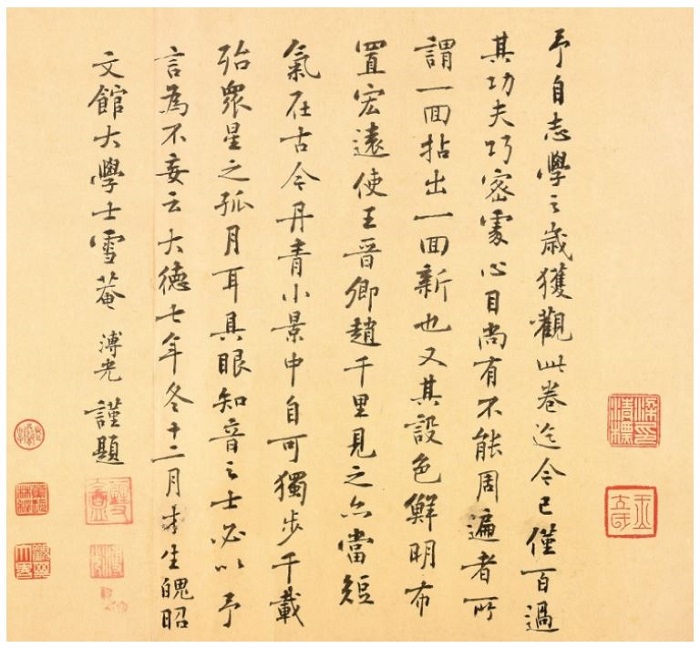 予自志學之歲獲觀此卷迄今已僅百過
其功夫巧密處心目尚有不能周遍者所
謂一回拈出一回新也又其設色鮮明布
置宏遠使王晉卿趙千里見之亦當短
氣在古今丹青小景中自可獨步千載
殆眾星之孤月耳具眼知音之士必以予
言為不妄云大德七年冬十二月才生魄昭
文館大學士雪菴溥光謹題